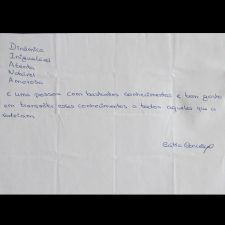 Dinâmica
Inigualável
Atenta
Notável
Amorosa
é uma pessoa com bastantes conhecimentos e tem gosto
em transmitir esses conhecimentos a todos aqueles que a
rodeiam.